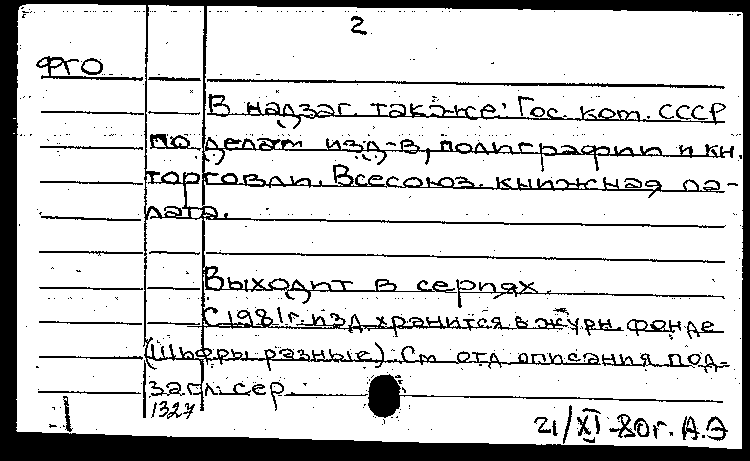 2
ФГО
В надзаг. также: Гос. ком. СССР
по делам изд-в, полиграфии и кн.
торговли. Всесоюз. книжная па-
лата.
Выходит в сериях.
С 1981г. изд. хранится в журн. фонде
(Шифры разные). См. отд. описания под
загл. сер.
1327
21/XI-80г. А.Э